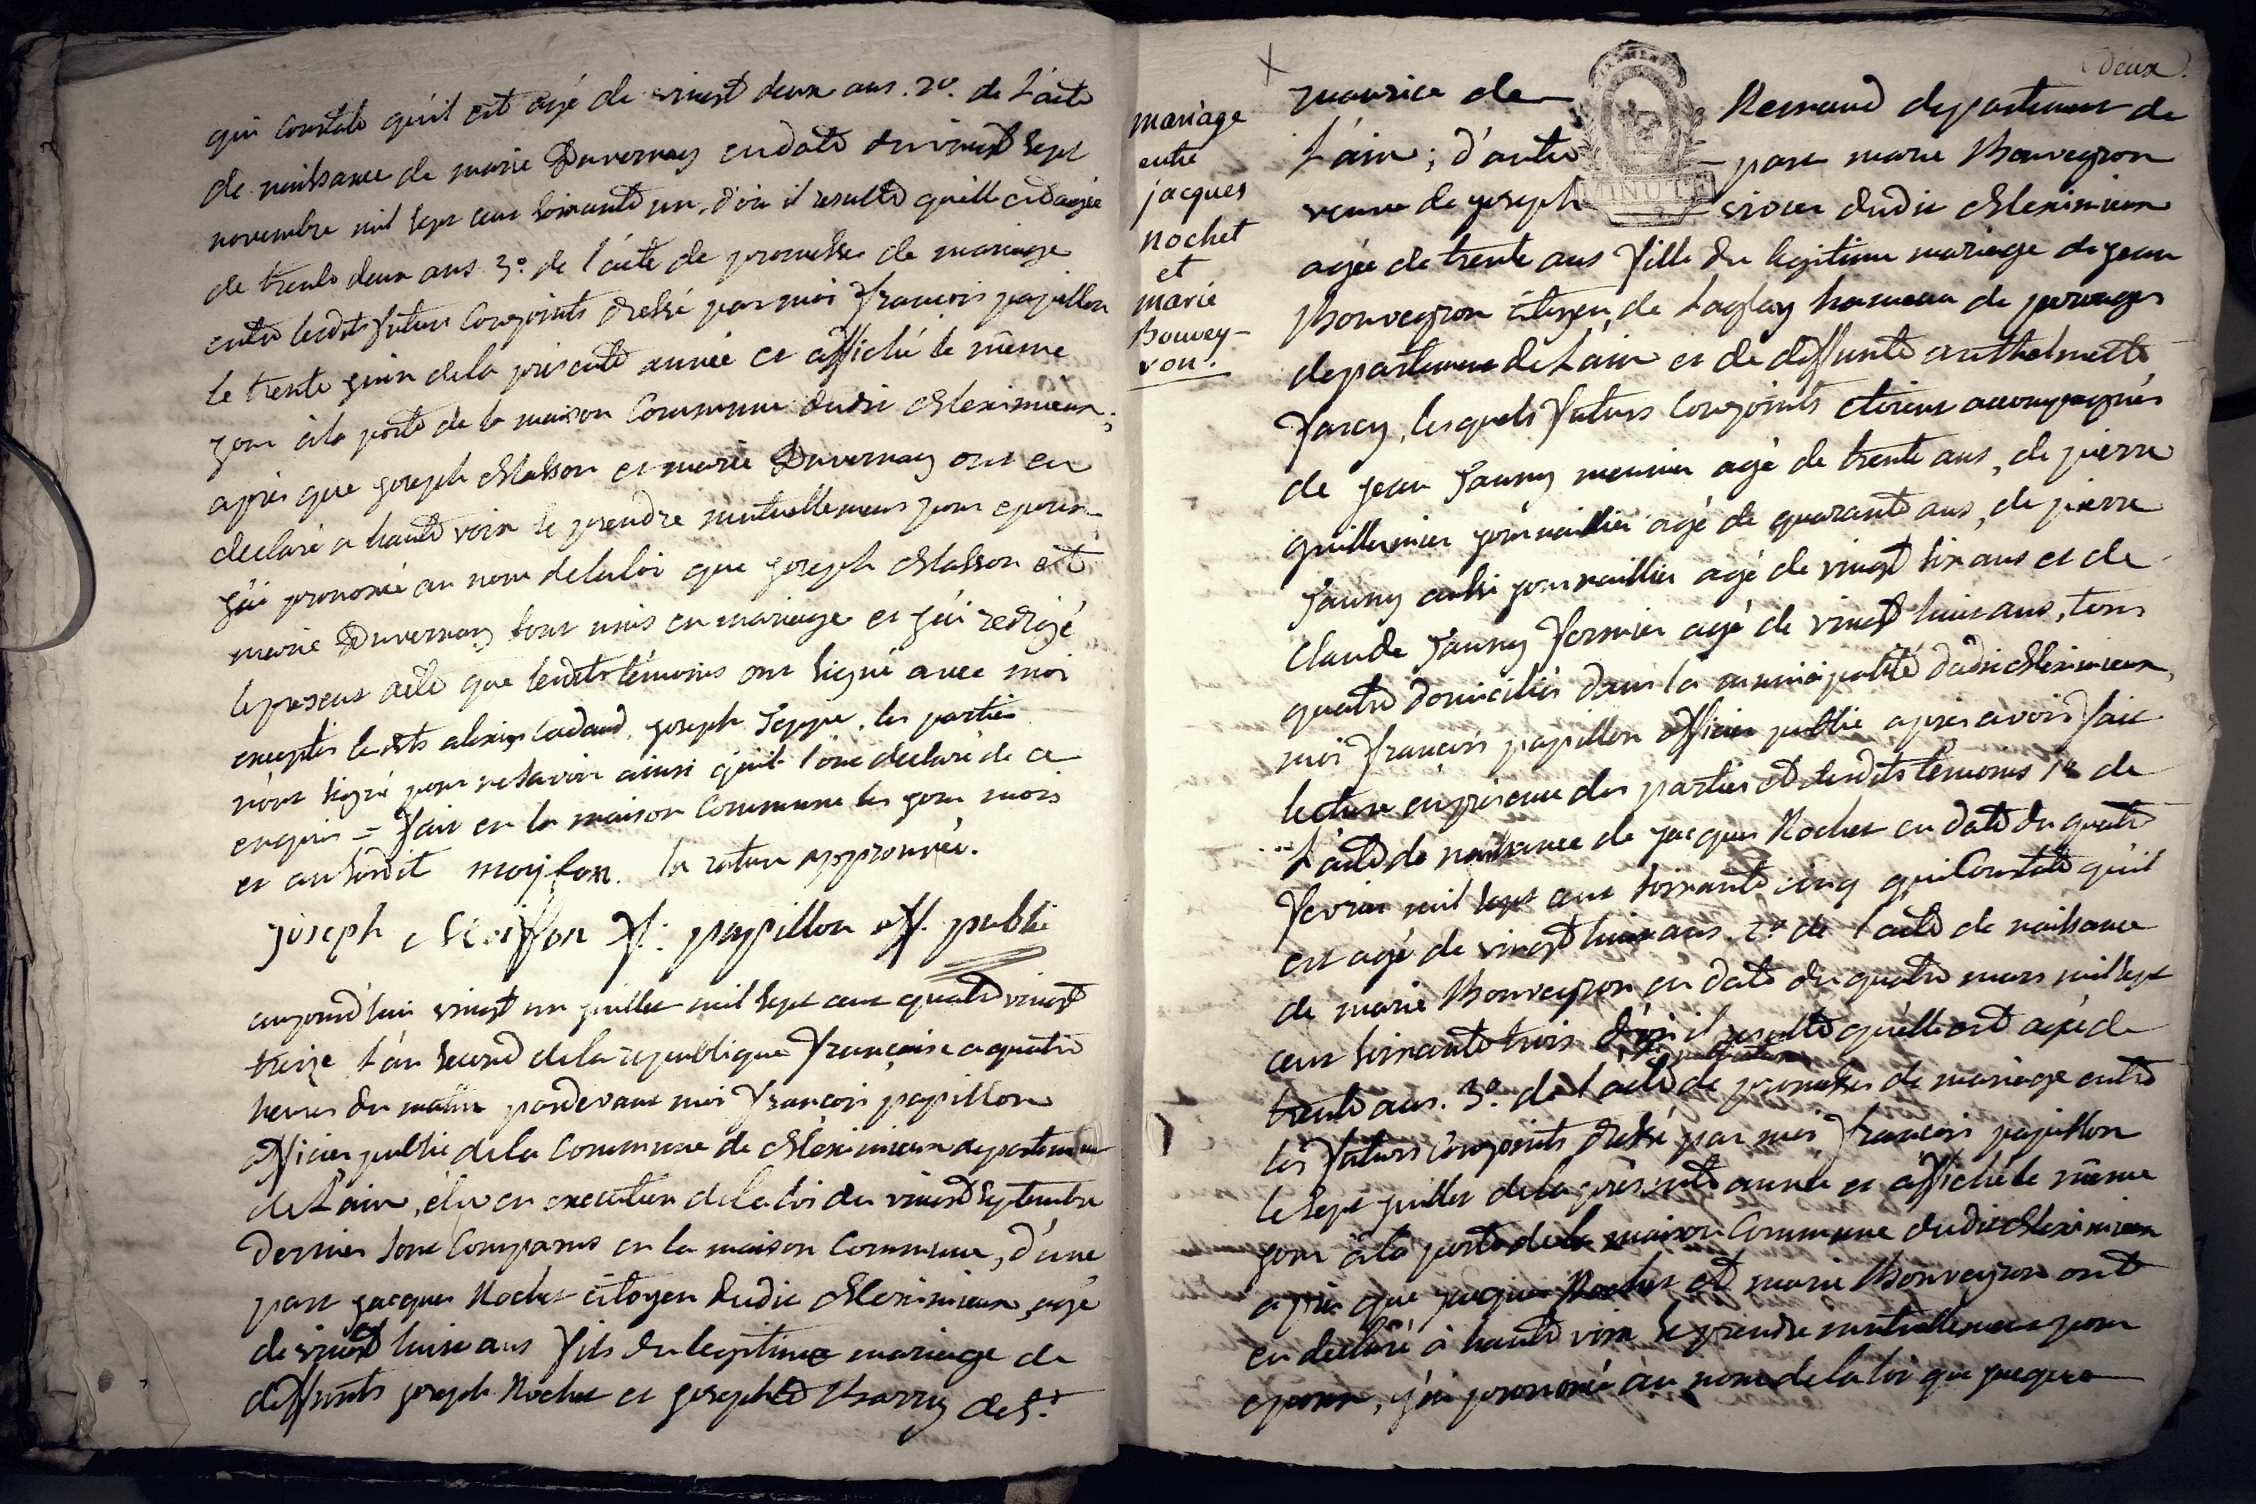 qui constate qu'il est agé de vingt deux ans. 2º. de l'acte
de naissance de marie Duvernay en date du vingt sept
novembre mil sept cent soixante un, d'où il resulte quelle est agée
de trente deux ans 3º. de l'acte de promesse de mariage
entre lesdits futurs conjoints dressé par moi françois papillon
le trente juin de la présente année et affiché le même
jour à la porte de la maison commune dudit Meximieux;
après que joseph Masson et marie Duvernay ont eu
declaré a haute voix se prendre mutuellement pour epoux
j'ai prononcé au nom de la loi que joseph Masson et
marie Duvernay sont unis en mariage et j'ai redigé
le present acte que lesdits témoins ont signé avec moi
exceptés lesdits alexis cadaud, joseph Seppe, les parties
n'ont signé pour ne savoir ainsi qu'ils l'ont declaré de ce
enquis = fait en la maison commune les jour mois
et an susdit moiffon. la rature approuvée.
joseph Moiffon f: papillon off. public
aujourd'hui vingt un juillet mil sept cent quatre vingt
treize l'an second de la republique française a quatre
heures du matin pardevant moi françois papillon
officier public de la commune de Meximieux departement
de L'ain, élu en execution de la loi du vingt septembre
dernier sont comparus en la maison commune, d'une
part jacques Rochet citoyen dudit Meximieux, agé
de vingt huit ans fils du legitime mariage de
deffunts joseph Rochet et josephte Charry de St.
deux.
mariage
entre
jacques
Rochet
et
marie
Bouvey-
ron.
maurice de Remand departement de
L'ain; d'autre part marie Bouveyron
veuve de joseph vivier dudit Meximieux
MINUTE
agée de trente ans fille du legitime mariage de jean
Bouveyron citoyen de Laglay hameau de perouges
departement de L'ain et de deffunte anthelmette
farcy, lesquels futurs conjoints etoient accompagnés
de jean Jauny meunier agé de trente ans, de pierre
guillermier journaillier agé de quarante ans, de pierre
Jauny aussi journaillier agé de vingt six ans et de
Claude Jauny fermier agé de vingt huit ans, tous
quatre domiciliés dans la municipalité dudit Meximieux,
moi françois papillon officier public après avoir fait
lecture en présence des parties et desdits témoins 1º de
L'acte de naissance de jacques Rochet en date du quatre
fevrier mil sept cent soixante cinq qui constate qu'il
est agé de vingt huit ans. 2º de l'acte de naissance
de marie Bouveyron en date du quatre mars mil sept
cent soixante trois d'où il resulte qu'elle est agée de
trente ans. 3º. de l'acte de promesses de mariage entre
les futurs conjoints dressé par moi françois papillon
le sept juillet de la présente année et affiché le même
jour à la porte de la maison commune dudit Meximieux
après que jacques Rochet et marie Bouveyron ont
eu declaré à haute voix se prendre mutuellement pour
epoux, j'ai prononcé au nom de la loi que jacques